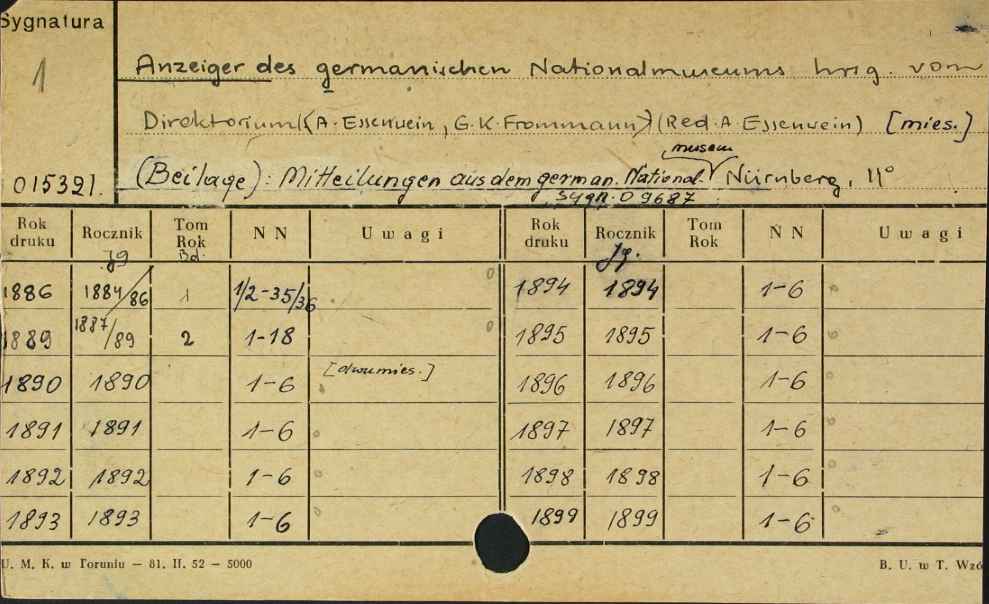 Sygnatura
1
Anzeiger des germanischen Nationalmuseums hrsg. vom
Direktorium (A. Essenwein, G.K. Frommann) (Red. A. Essenwein) [mies.]
museum
015321. (Beilage): Mitteilungen aus dem german. National. Nürnberg, 4°
Sygn. 09687
Rok druku Rocznik Tom Rok N N Uwagi Rok druku Rocznik Tom Rok N N Uwagi
Jg Bd. Jg.
1886 1884/86 1 1/2-35/36 0 1894 1894 1-6
1889 1887/89 2 1-18 0 1895 1895 1-6
1890 1890 1-6 [dwumies.] 1896 1896 1-6
1891 1891 1-6 1897 1897 1-6
1892 1892 1-6 1898 1898 1-6
1893 1893 1-6 1899 1899 1-6
U. M. K. w Toruniu — 81. II. 52 — 5000 B. U. w T. Wzó